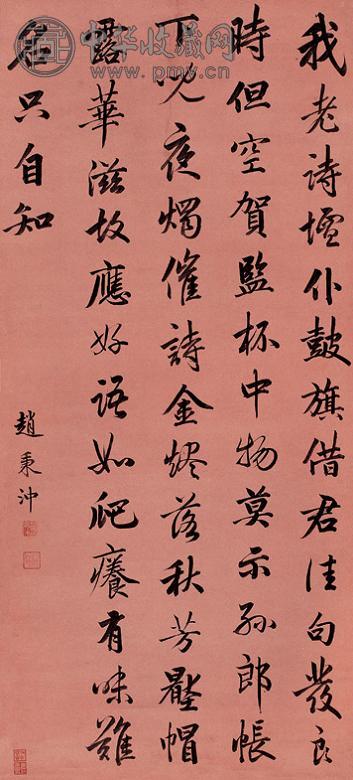 我老詩壇仆鼓旗借君佳句發良
時但空賀監杯中物莫示孫郎帳
下兒夜燭催詩金燼落秋芳壓帽
露華滋故應好語如爬癢有味難
名只自知
趙秉沖
中华收藏网
www.pmv.cn